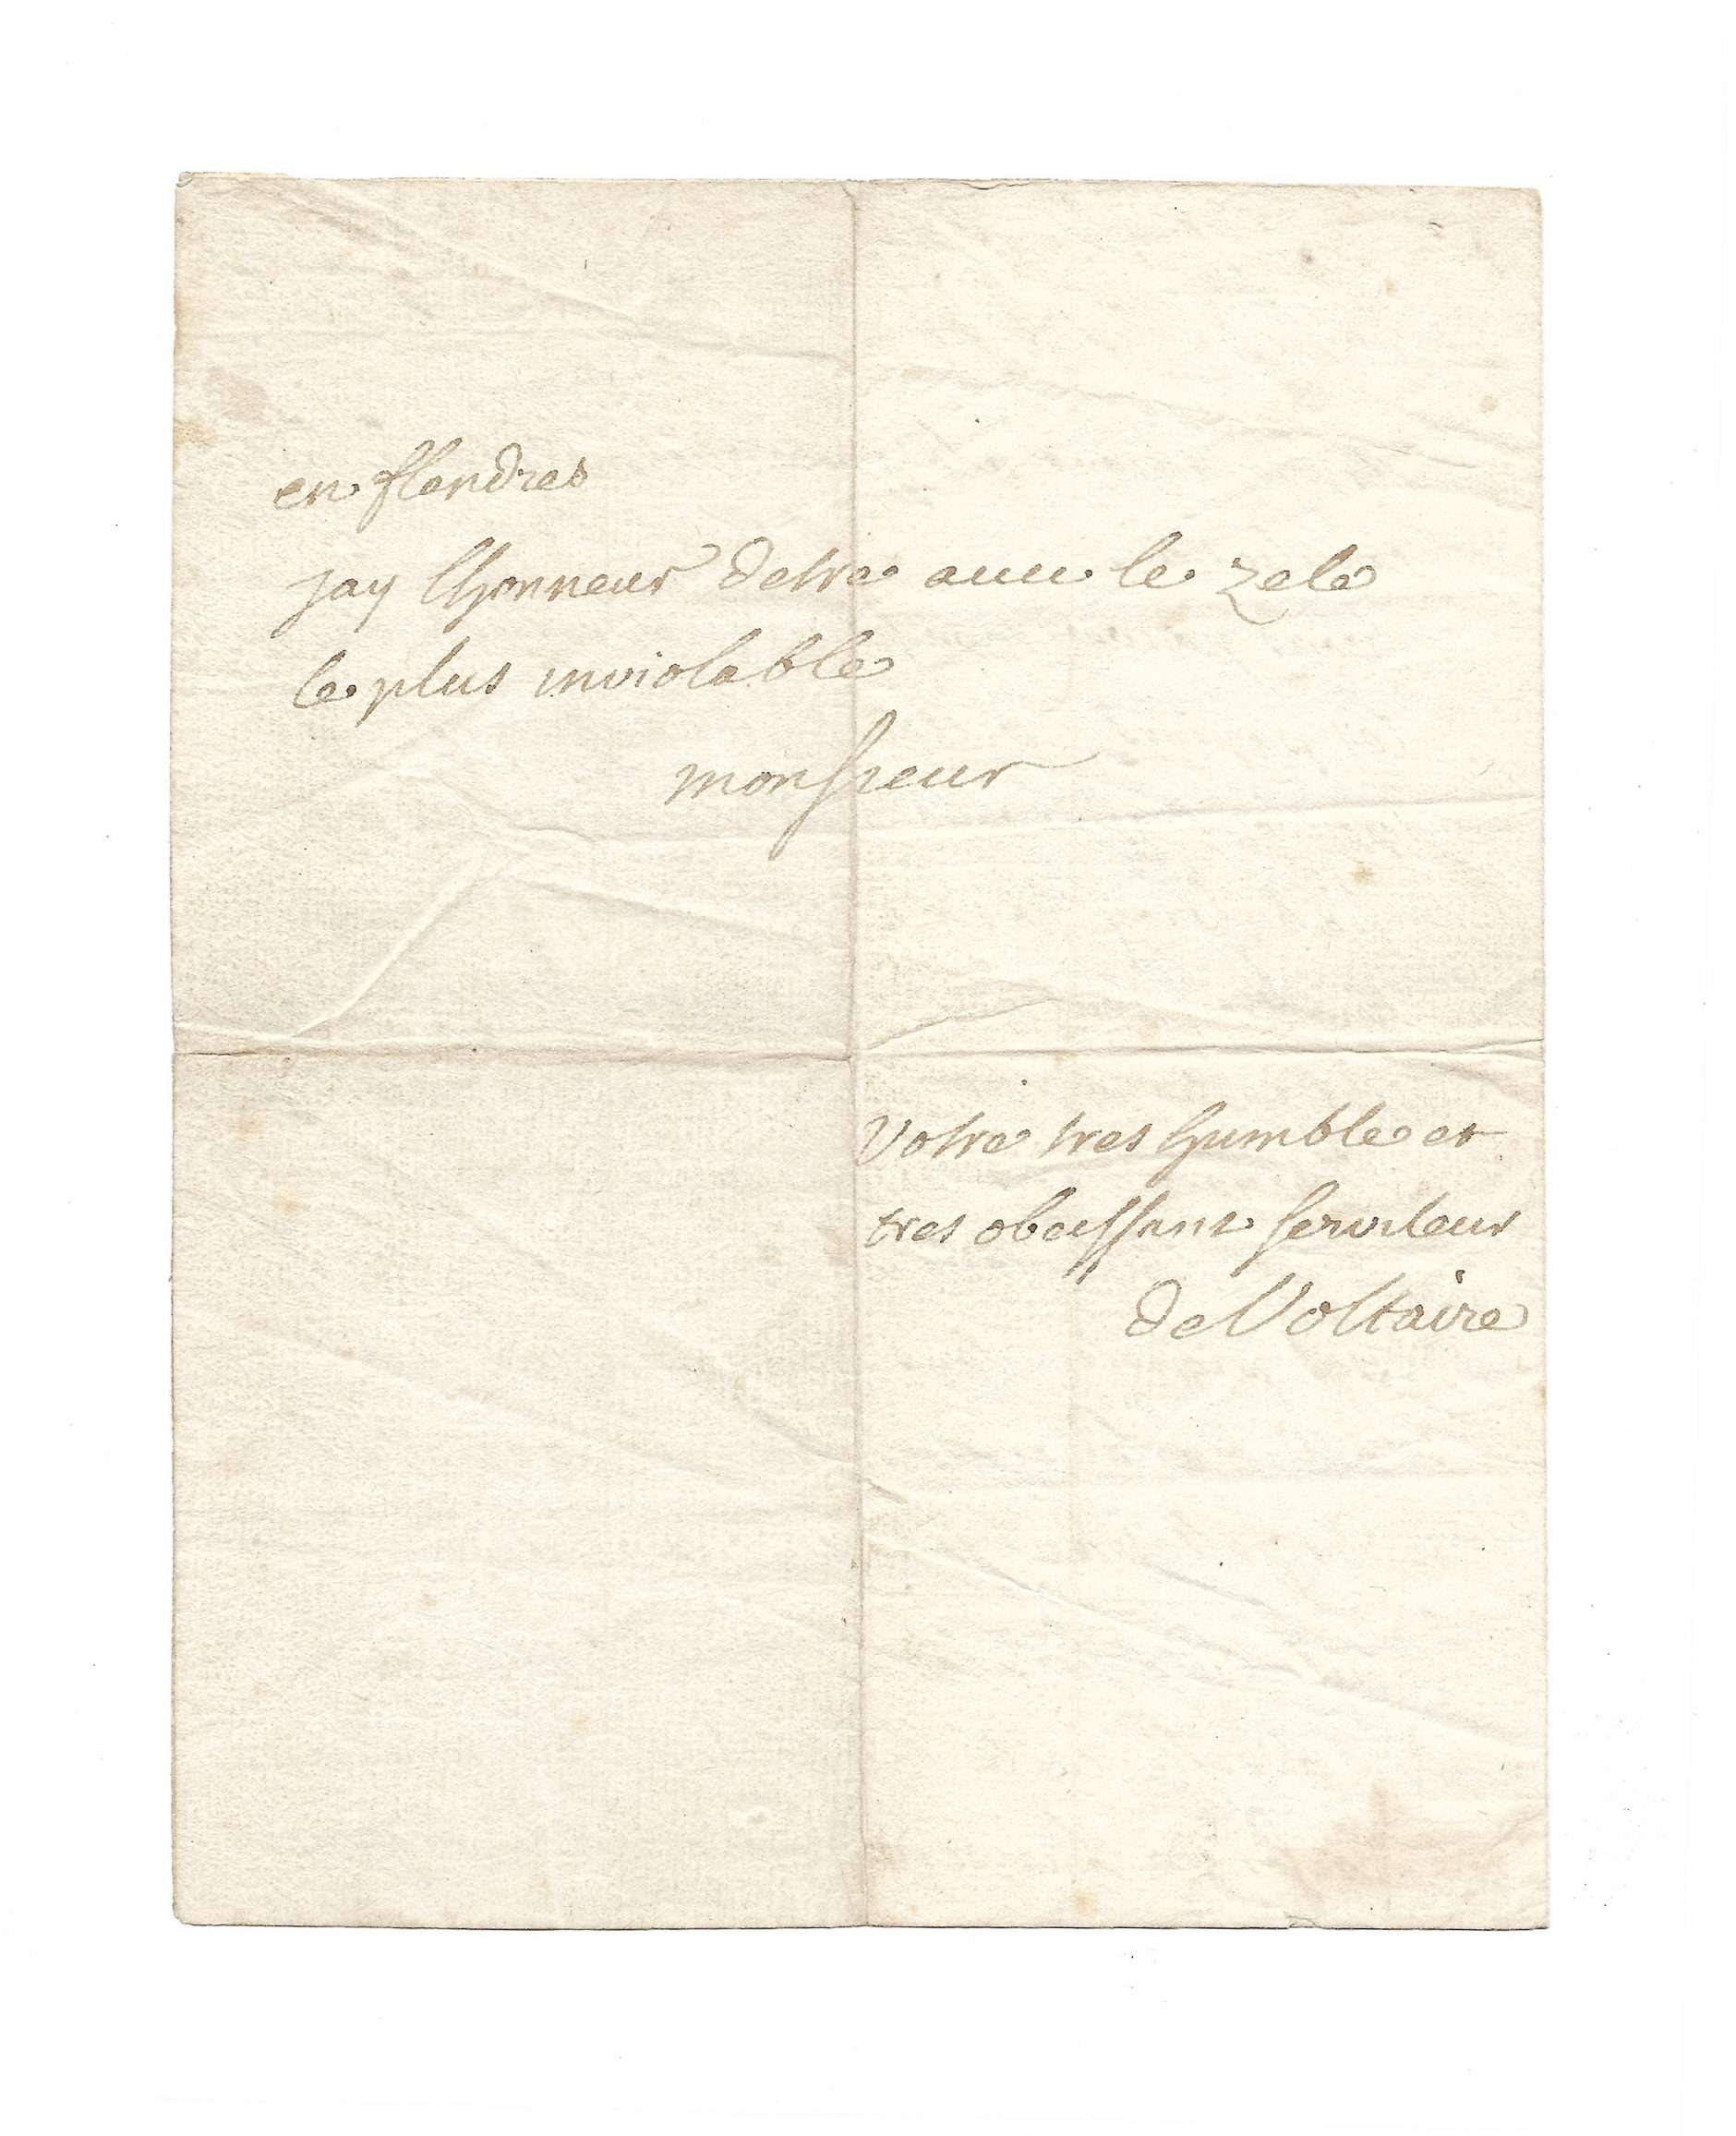 en flandres
jay lhonneur detre avec le zele
le plus inviolable
monsieur
votre tres humble et
tres obeissant serviteur
de Voltaire